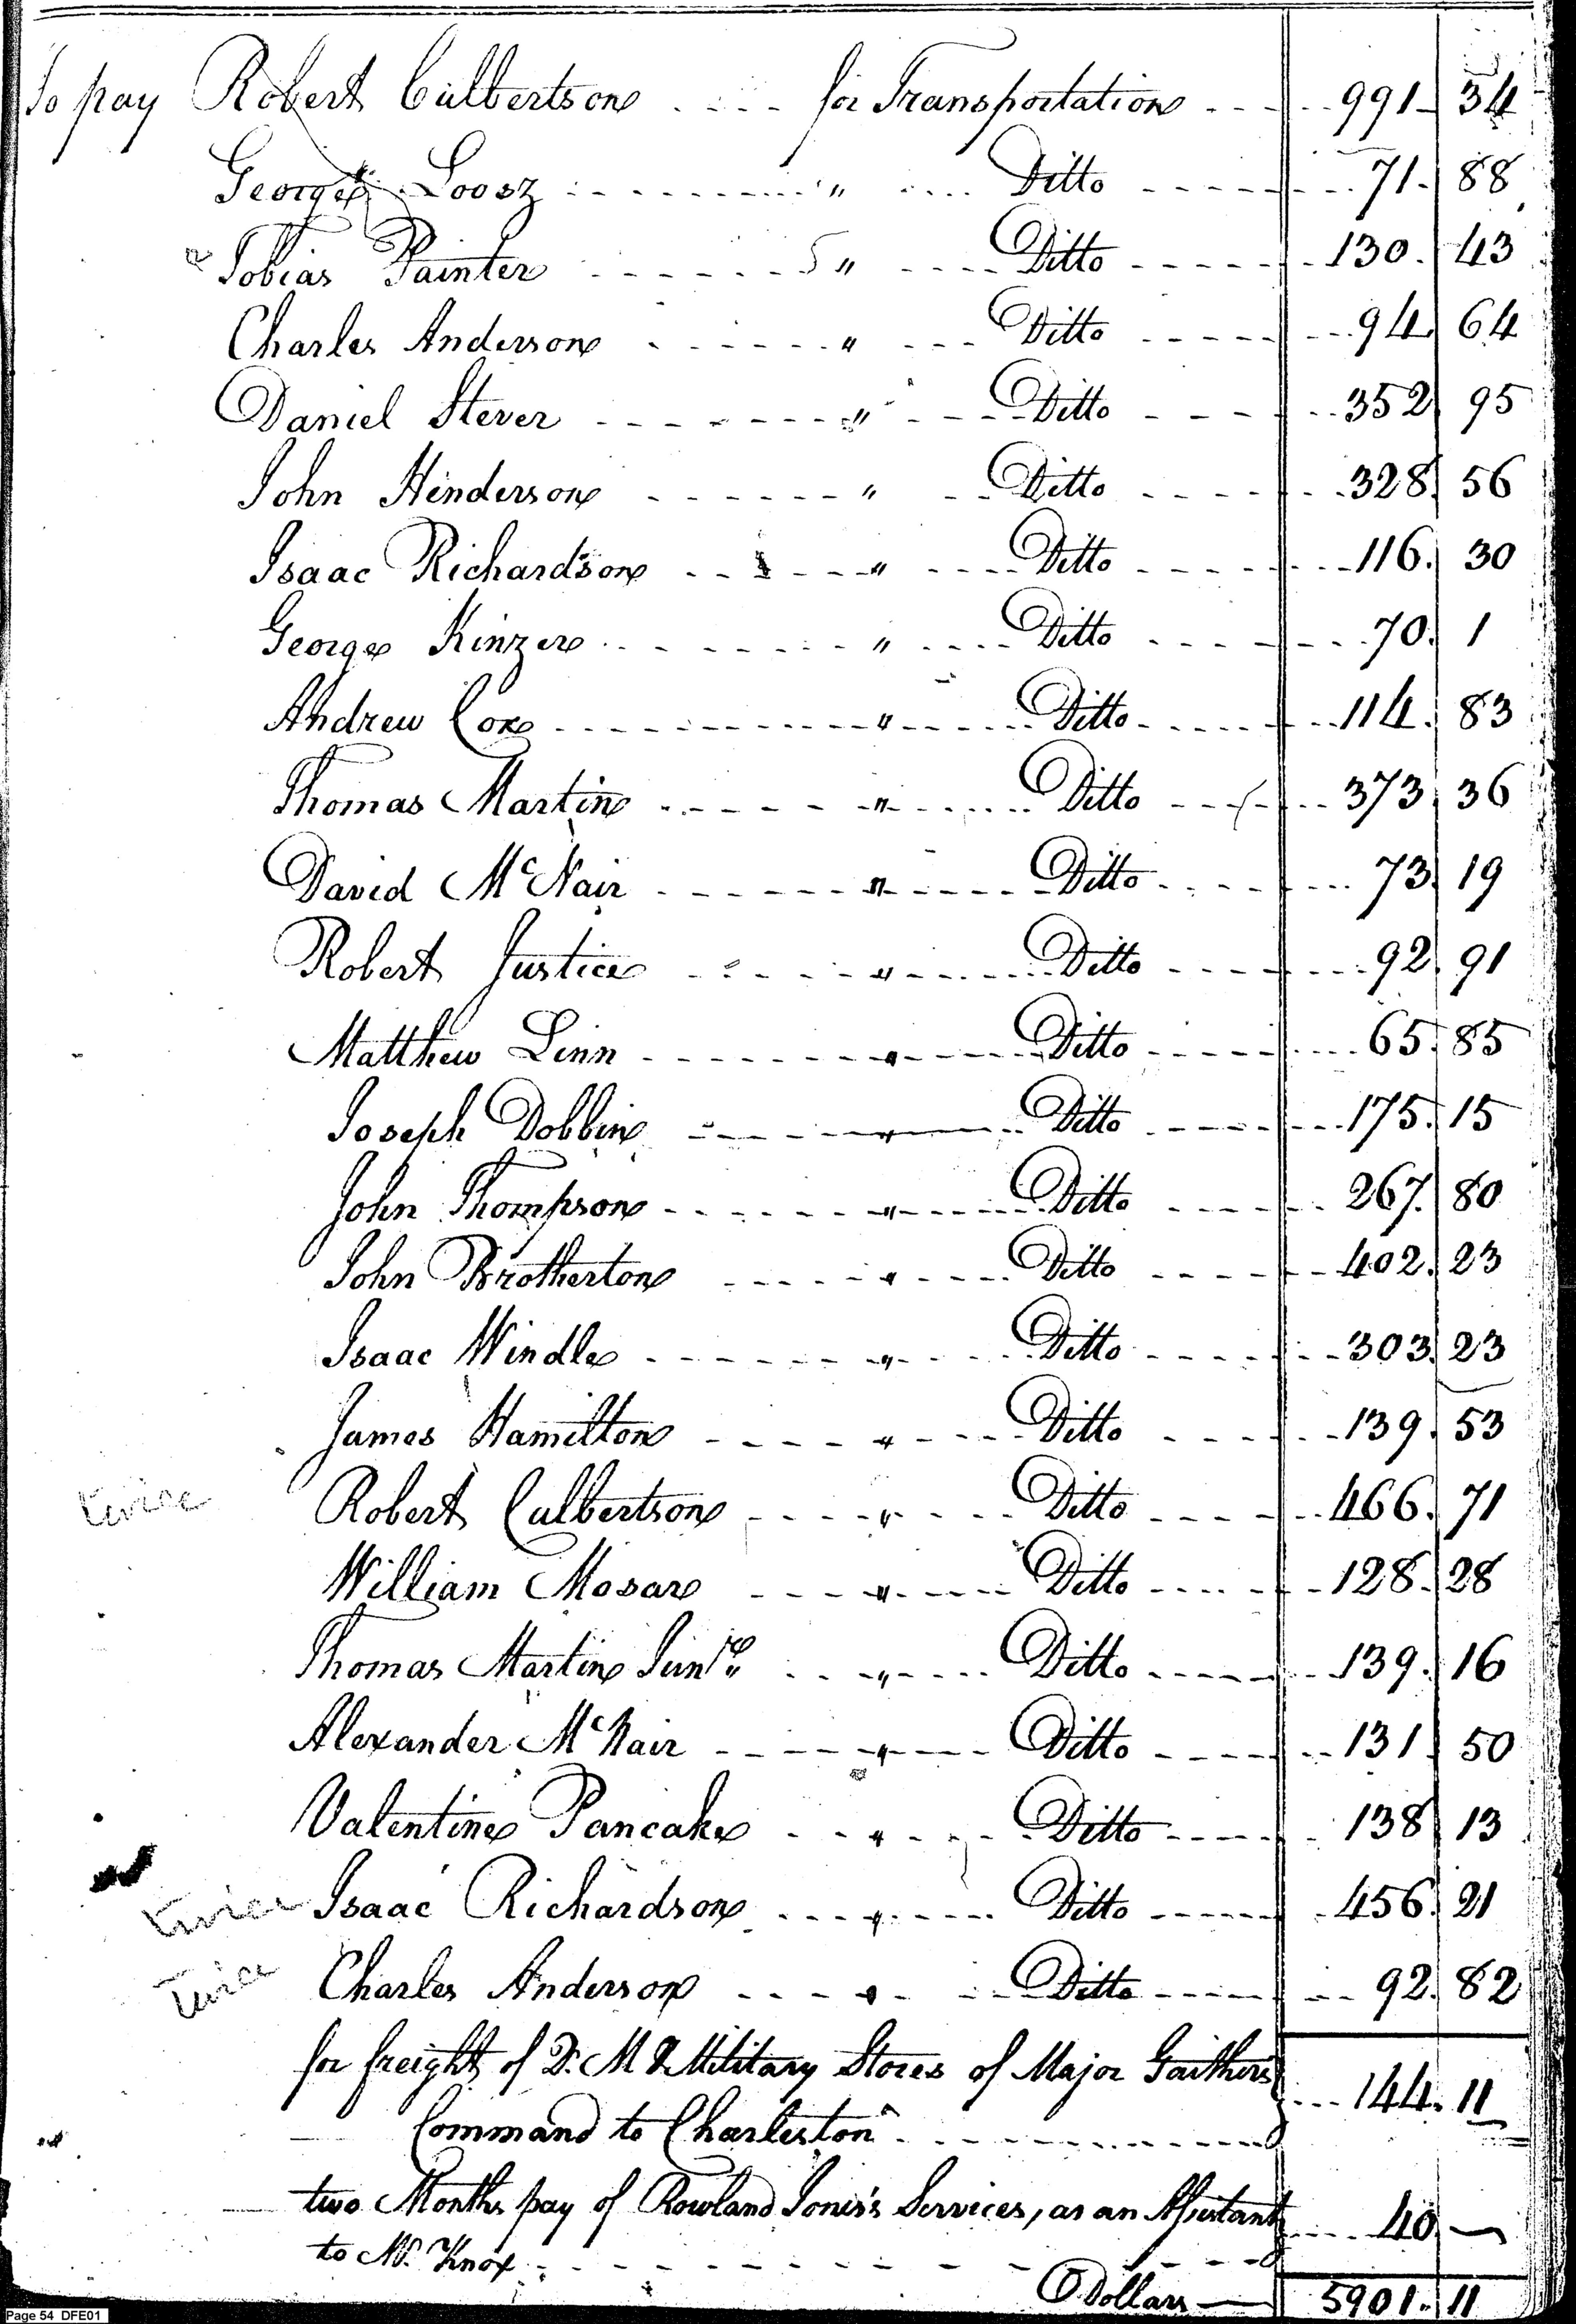 To pay Robert Culbertson .... for Transportation .... 991. 34
George Loosz .... " .... Ditto .... 71. 88
Tobias Painter .... " .... Ditto .... 130. 43
Charles Anderson .... " .... Ditto .... 94. 64
Daniel Stever .... " .... Ditto .... 352. 95
John Henderson .... " .... Ditto .... 328. 56
Isaac Richardson .... " .... Ditto .... 116. 30
George Kinzer .... " .... Ditto .... 70. 1
Andrew Cox .... " .... Ditto .... 114. 83
Thomas Martin .... " .... Ditto .... 373. 36
David McNair .... " .... Ditto .... 73. 19
Robert Justice .... " .... Ditto .... 92. 91
Matthew Linn .... " .... Ditto .... 65. 85
Joseph Dobbin .... " .... Ditto .... 175. 15
John Thompson .... " .... Ditto .... 267. 80
John Brotherton .... " .... Ditto .... 402. 23
Isaac Windle .... " .... Ditto .... 303. 23
James Hamilton .... " .... Ditto .... 139. 53
twice Robert Culbertson .... " .... Ditto .... 466. 71
William Mosar .... " .... Ditto .... 128. 28
Thomas Martin Junr .... " .... Ditto .... 139. 16
Alexander McNair .... " .... Ditto .... 131. 50
Valentine Pancake .... " .... Ditto .... 138. 13
twice Isaac Richardson .... " .... Ditto .... 456. 21
twice Charles Anderson .... " .... Ditto .... 92. 82
for freight of D. M & Military Stores of Major Gaithers
Command to Charleston .... 144. 11
two Months pay of Rowland Jones's Services, as an Assistant
to Mr. Knox .... 40 —
Dollars — 5901. 11
Page 54 DFE01